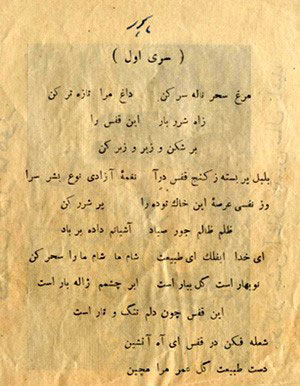 ماهور
( سری اول )
مرغ سحر ناله سر کن داغ مرا تازه تر کن
زاه شرر بار این قفس را
بر شکن و زیر و زبر کن
بلبل پر بسته ز کنج قفس درآ نغمهٔ آزادی نوع بشر سرا
وز نفسی عرصهٔ این خاك توده را پر شرر کن
ظلم ظالم جور صیاد آشیانم داده بر باد
ای خدا ایفلك ای طبیعت شام ما شام ما را سحر کن
نوبهار است گل ببار است ابر چشمم ژاله بار است
این قفس چون دلم تنگ و تار است
شعله فکن در قفس ای آه آتشین
دست طبیعت گل عمر مرا مچین